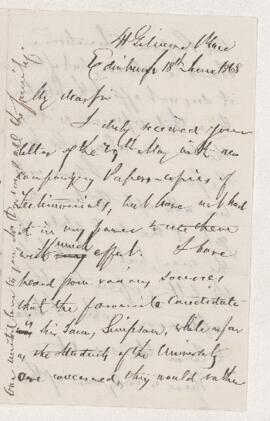 Gilmore Place
Edinburgh 18th June 1868
My dear Sir
I duly received your
letter of the 29th May with ac
companying Papers copies of
Testimonials, but have not had
it in my power to use them
with much effect. I have
heard from various sources
that the favourite Candidate
is Sir James Simpson, while as far
as the Students of the University
are concerned, they would rather
our united love to you
all the family.